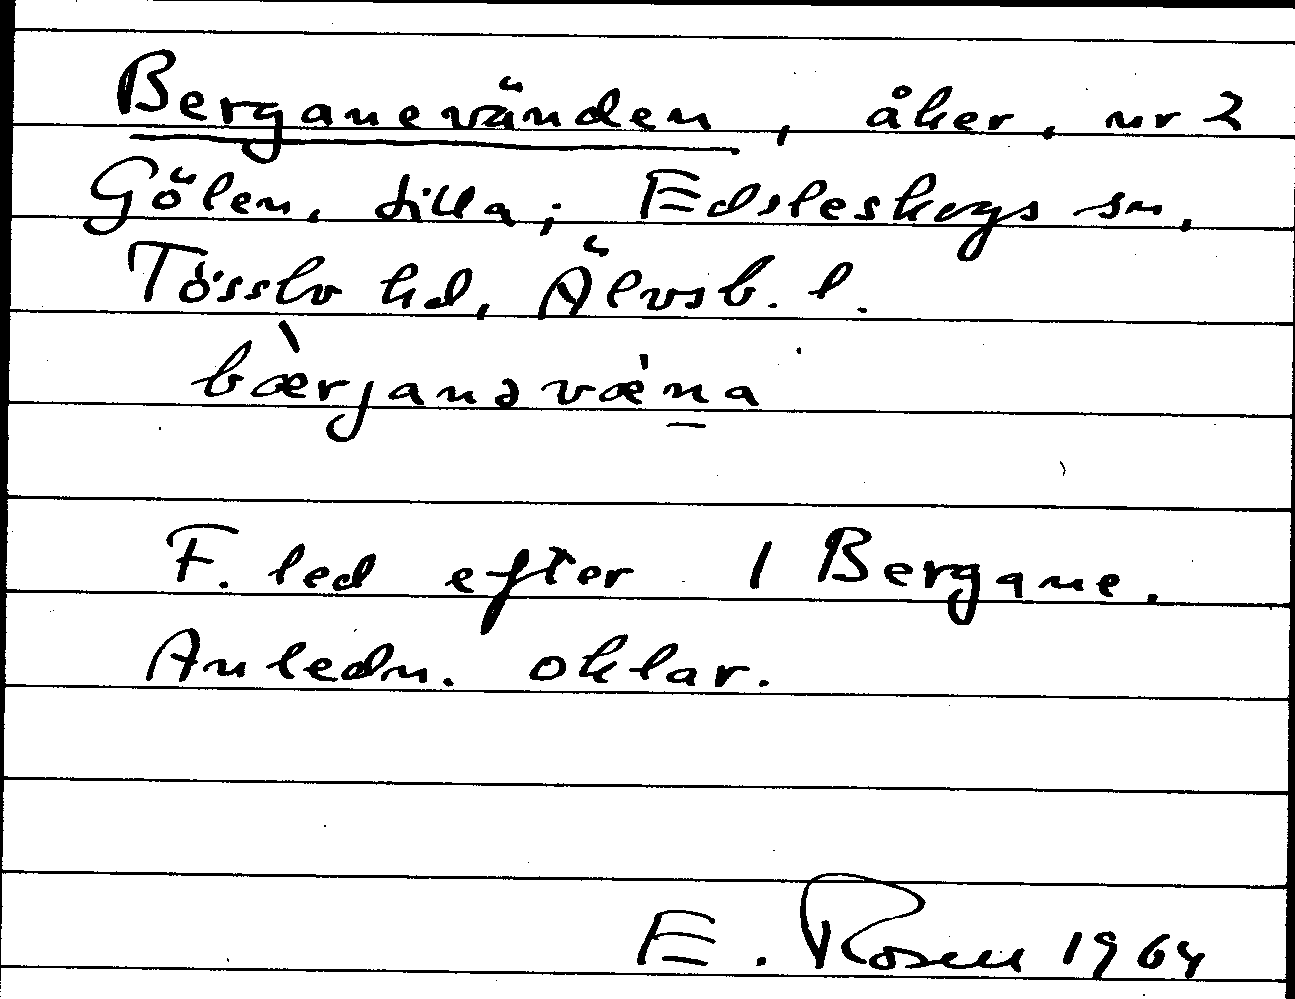 Berganevänden, åker, nr 2
Gölen, tilla; Edsleskogs sn,
Tössbo hd, Älvsb. l.
bæ̀rjanəvæ̀na
F. led efter 1 Bergane.
Anledn. oklar.
E. Rosen 1964